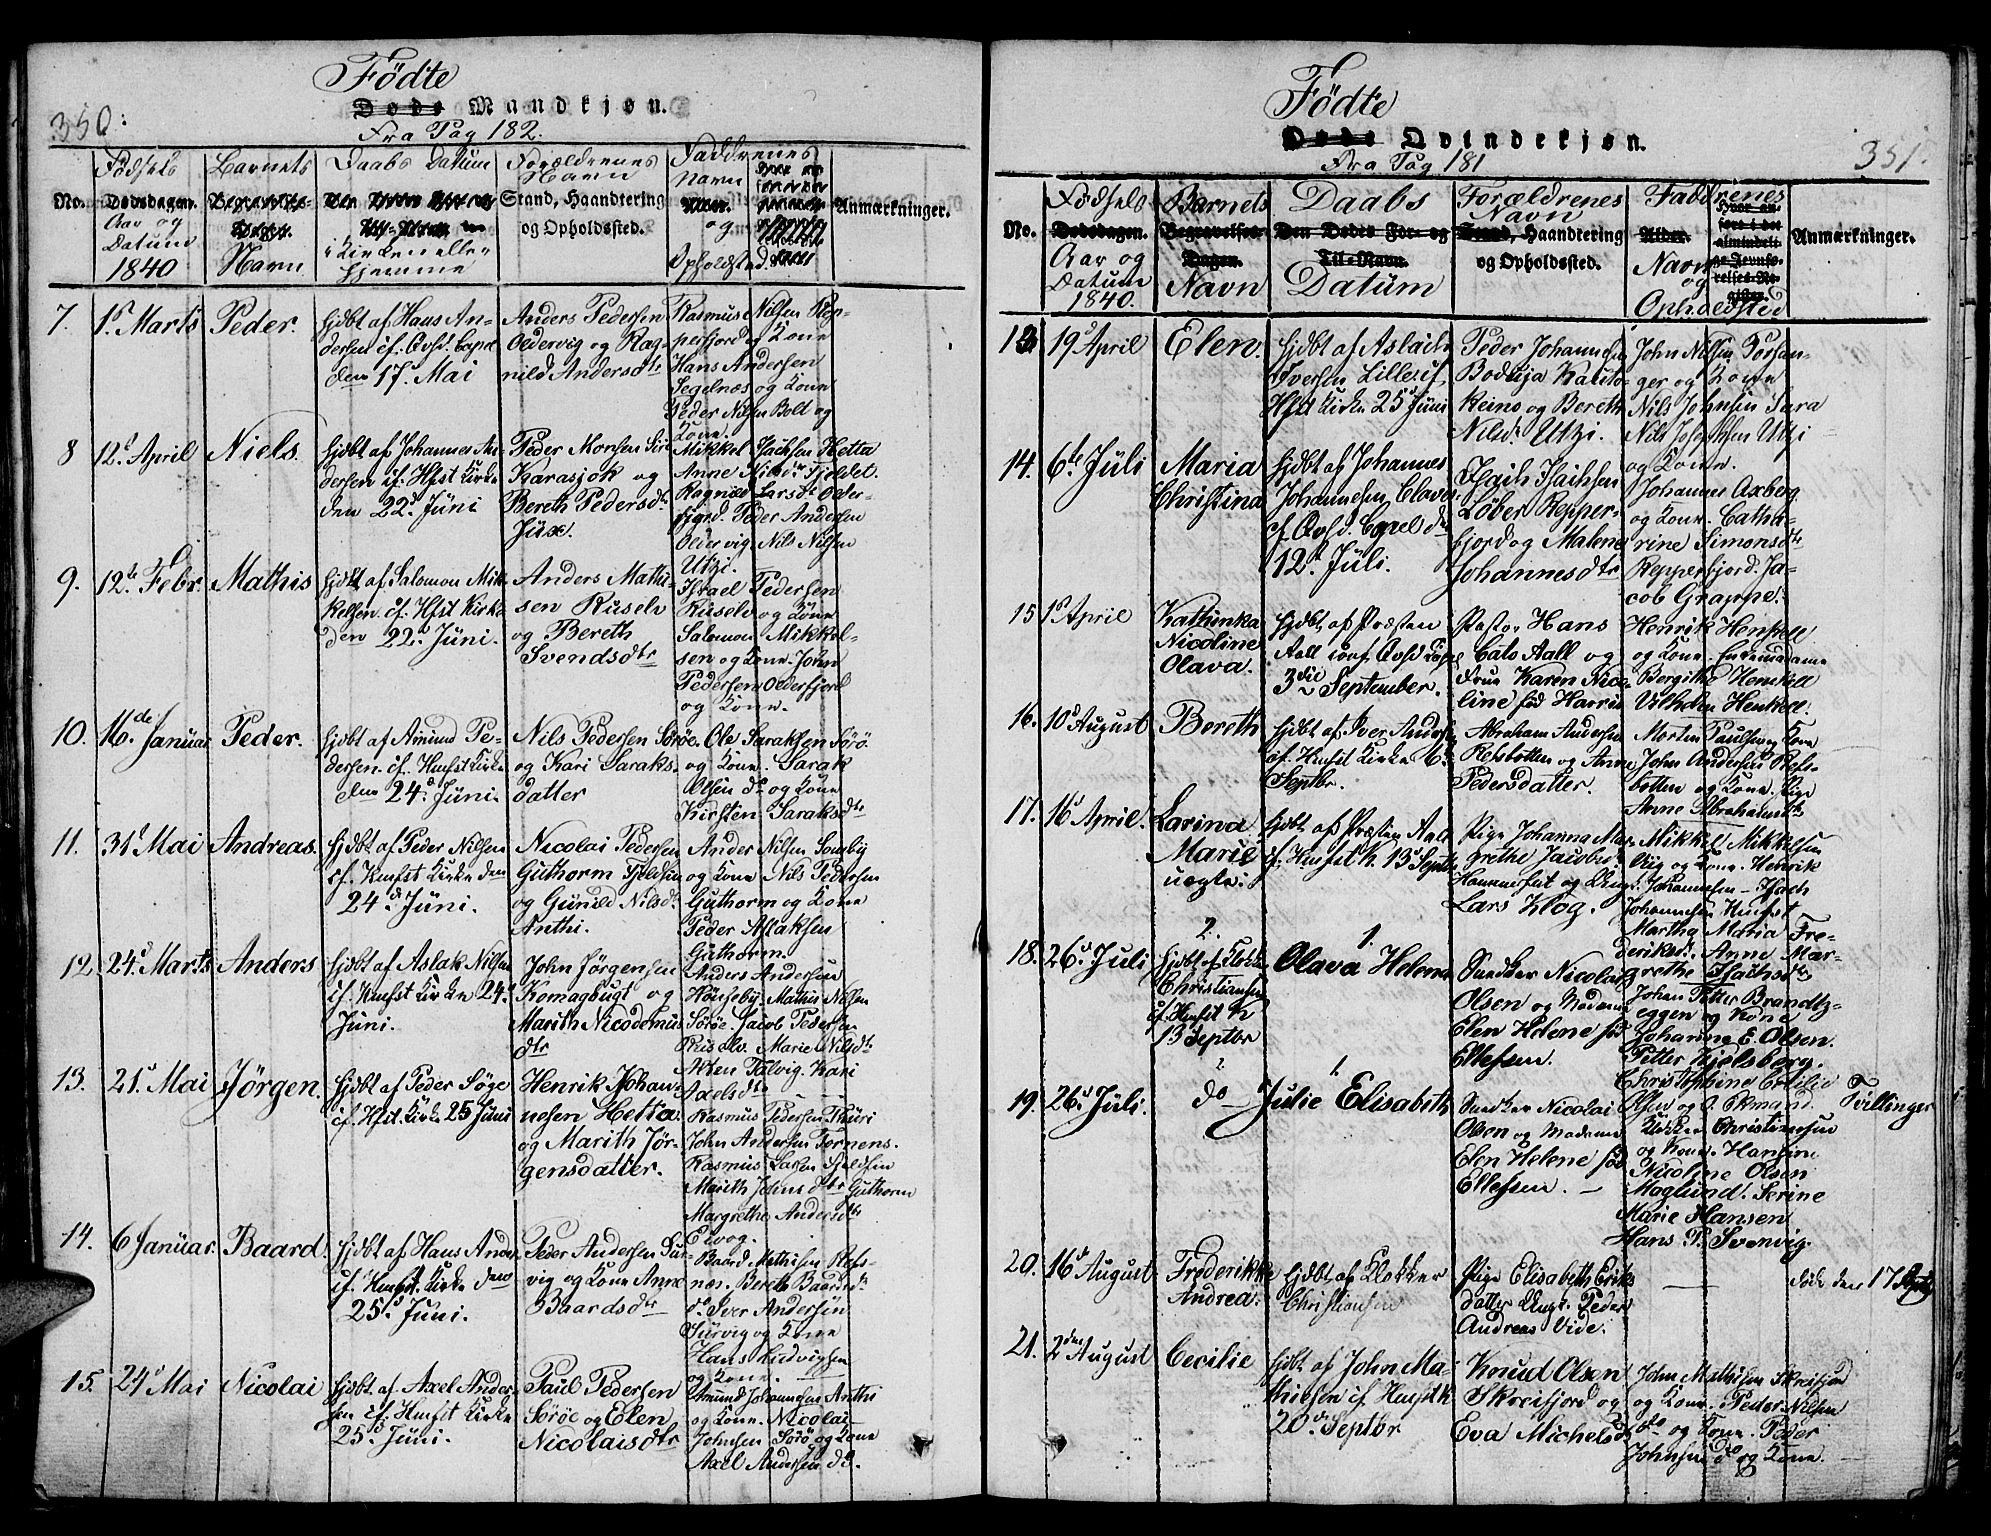 350.
Födte
Døde Mandkjøn.
Fra Pag 182.
No.
Födsels
Dødsdagen.
Aar og
Datum
1840
Barnets
Navn
Daabs Datum
i Kirken eller
hjemme
Forældrenes
Navn
Stand, Haandtering
og Opholdssted.
Faddrenes
Navn
Alder.
og
Opholdssted.
Anmærkninger.
7. 1st Marts Peder.
hjdbt af Hans An-
dersen cf. Qvsd. Capel
den 17d. Mai
Anders Pedersen
Oldervig og Rag-
nild Andersdtr
Rasmus Nilsen Rep-
perfjord og Kone
Hans Andersen
Segelnæs og Kone
Peder Nilsen Bolt og
Kone.
8 12d. April Niels.
hjdbt af Johannes An
dersen cf. Hfst Kirke
den 22d. Jüni
Peder Monsen Siri
Karasjok og
Bereth Pedersdtr
Jüx!.
Mikkel Isachsen Hetta
Anne Nilsdtr Tjeldet.
Ragnild Larsdtr Older-
fjord. Peder Andersen
Oldervig. Nils Nilsen
Utzi.
9. 12te Febr. Mathis
hjdbt af Salomon Mik
kelsen cf. Hfst Kirke
den 22d. Jüni.
Anders Mathi-
sen Rüselv
og Bereth
Svendsdtr
Israel Pedersen
Rüselv og Kone
Salomon Mikkel-
sen og Kone. John
Pedersen Olderfjord
og Kone.
10. 16de. Janüar Peder.
hjdbt af Amund Pe-
dersen cf. Hmfst Kirke
den 24d. Jüni.
Nils Pedersen Sörøe.
og Kari Saraks-
datter
Ole Saraksen Sörö.
og Kone. Sarak
Olsen do og Kone
Kirsten Saraksdtr
11. 31d Mai Andreas.
hjdbt af Peder Nilsen
cf. Hmfst Kirke den
24d. Jüni.
Nicolai Pedersen
Guthorm Fjeldsen
og Günild Nilsdtr
Anthi.
Ander Nilsen Somby
og Kone Nils Pedersen
Guthorm og Kone
Peder Aslaksen
Guthorm.
12 24d. Marts Anders
hjdbt af Aslak Nilsen
cf. Hmfst Kirke 24d
Jüni.
John Jörgensen
Komagbugt og
Marith Nicodemus
dtr
Anders Andersen
Hönseby. Mathis Nilsen
Sörøe. Jacob Pedersen
Rüselv. Marie Nilsdtr
Alten Talvig. Kari
Axelsdtr
13. 21d Mai Jörgen.
hjdbt af Peder Söge
cf. Hfst. Kirke 25 Jüni
Henrik Johan-
nesen Hetta.
og Marith Jör-
gensdatter.
Rasmus Pedersen Thüri
John Andersen Tornens.
Rasmus Larsen Fjeldsen
Marith Johnsdtr Guthorm
Margrethe Andersdtr
Eivog.
14. 6 Janüar. Baard.
hjdbt af Hans Anders
cf. Hmfst. Kirke den
25d. Jüni.
Peder Andersen Sur-
vig og Kone Anne
Baardsdtr
Baard Mathisen Refs-
næs. Bereth Baardsdtr
do Iver Andersen
Sürvig og Kone
Hans Ludvigsen
og Kone.
15. 24d Mai Nicolai
hjdbt af Axel Ander-
sen cf. Hmfst Kirke
25d. Jüni.
Paul Pedersen
Sörøe og Elen
Nicolaisdtr
Amund Johannesen Anthi
og Kone. Nicolai
Johnsen Sörö og Kone
Axel Andersen do.
351.
Födte
Døde Qvindekjøn.
Fra Pag 181
No.
Födsels
Dødsdagen.
Aar og
Datum
1840.
Barnets
Begravelses-
Dagen.
Navn
Daabs
Den Dødes For- og
Til-Navn.
Datüm
Forældrenes
Navn
Stand, Haandtering
og Opholdssted.
Faddrenes
Alder.
Navn
og
Opholdsted
Anmærkninger.
13 19d April Elen.
hjdbt af Aslach
Iversen Lille cf.
Hfst Kirke 25d Jüni
Peder Johannesen
Bodsija Kauto-
keino og Bereth
Nilsdtr Utzi.
John Nilsen Porsan-
ger og Kone
Nils Johnsen Sara
Nils Josephsen Utzi
og Kone.
14. 6te Jüli Maria
Christina
hjdbt af Johannes
Johannesen Claves
cf. Qvsd. Capel dn
12d. Jüli.
Isach Isachsen
Löber Repper-
fjord og Malene
Johannesdtr
Johannes Axberg
og Kone. Catha-
rine Simonsdtr
Repperfjord. Ja-
cob Grappe!.
15 1st April Kathinka
Nicoline
Olava.
hjdbt af Præsten
Aall conf. Qvsd Capel
3die September.
Pastor Hans
Cato Aall og
Frue Karen Nico-
line fød Harris
Henrik Henkell
og Kone. Enkemadame
Bergithe Henkell
Vilhden Henkell!
16. 10d August Bereth
hjdbt af Iver Anders
cf. Hmfst Kirke 6te
Septbr.
Abraham Andersen
Refsbotten og Anne
Pedersdatter.
Morten Paulsen og Kone
John Andersen Refs-
botten og Kone. Pige
Anne Abrahamsdtr
17. 16d April. Larina
Marie
uægte.
hjdbt af Præsten Aall
cf. Hmfst K. 13d Septbr
Pige Johanna Mar-
grethe Jacobsdtr
Hammerfest og Ungk.
Lars Klog.
Mikkel Mikkelsen
og Kone. Henrik
Johannesen. Isach
Johannesen Hmfst
Martha Maria Fre-
deriksdtr. Anne Mar-
grethe Isachsdtr
18. 26d Jüli
2.
hjdbt af Klokker
Christiansen
cf. Hmfst K
13 Septbr
1.
Olava Helene
Snedker Nicolai
Olsen og Madame
Elen Helene fød
Ellefsen.
Johan Petter Brandtz-
eggen og Kone
Johanne E. Olsen.
Petter Kjelsberg.
Christophine Cecilie
19. 26d Jüli.
2.
do
1.
Julie Elisabeth
Snedker Nicolai
Olsen og Madame
Elen Helene fød
Ellefsen.
Olsen og O. Ekmand.
Klokker Christiansen
og Kone. Hansine
Nicoline Olsen
Moglund!. Serine
Marie Hansen
Hans P. Svenvig.
Tvillinger
20. 16d August Frederikke
Andrea.
hjdbt af Klokker
Christiansen
Pige Elisabeth Eriks
datter Ungk. Peder
Andreas Vide.
död den 17 Septbr
21. 2den August Cecilie
hjdbt af John Ma-
thiesen cf. Hmfst K
20d. Septbr
Knud Olsen
Skreifjord og
Eva Michelsdtr
John Mathisen Skreifjord
og Kone. Peder Nilsen
do og Kone. Peder
Johnsen do og Kone.